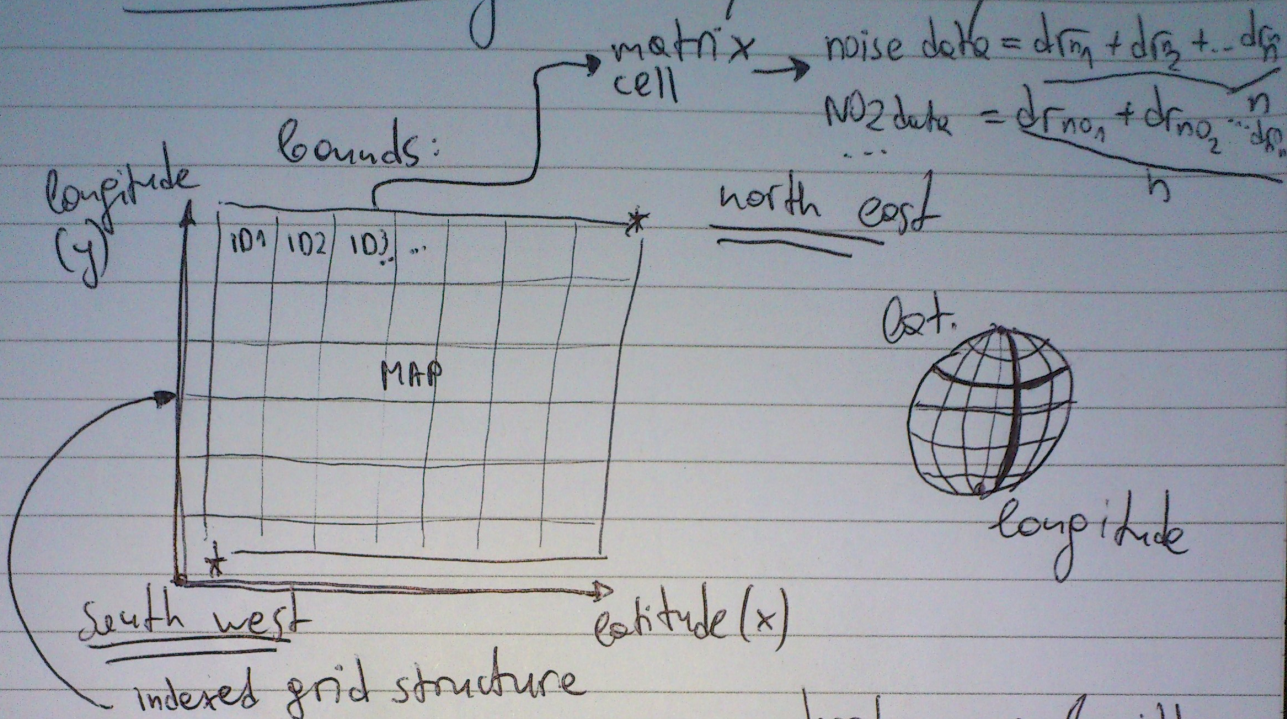 matrix cell
noise data = drn1 + drn2 + ... drnn
n
NO2 data = drno1 + drno2 ...
n
...
bounds:
longitude
(y)
north east
ID1 ID2 ID3 ...
MAP
Lat.
longitude
south west
latitude (x)
indexed grid structure